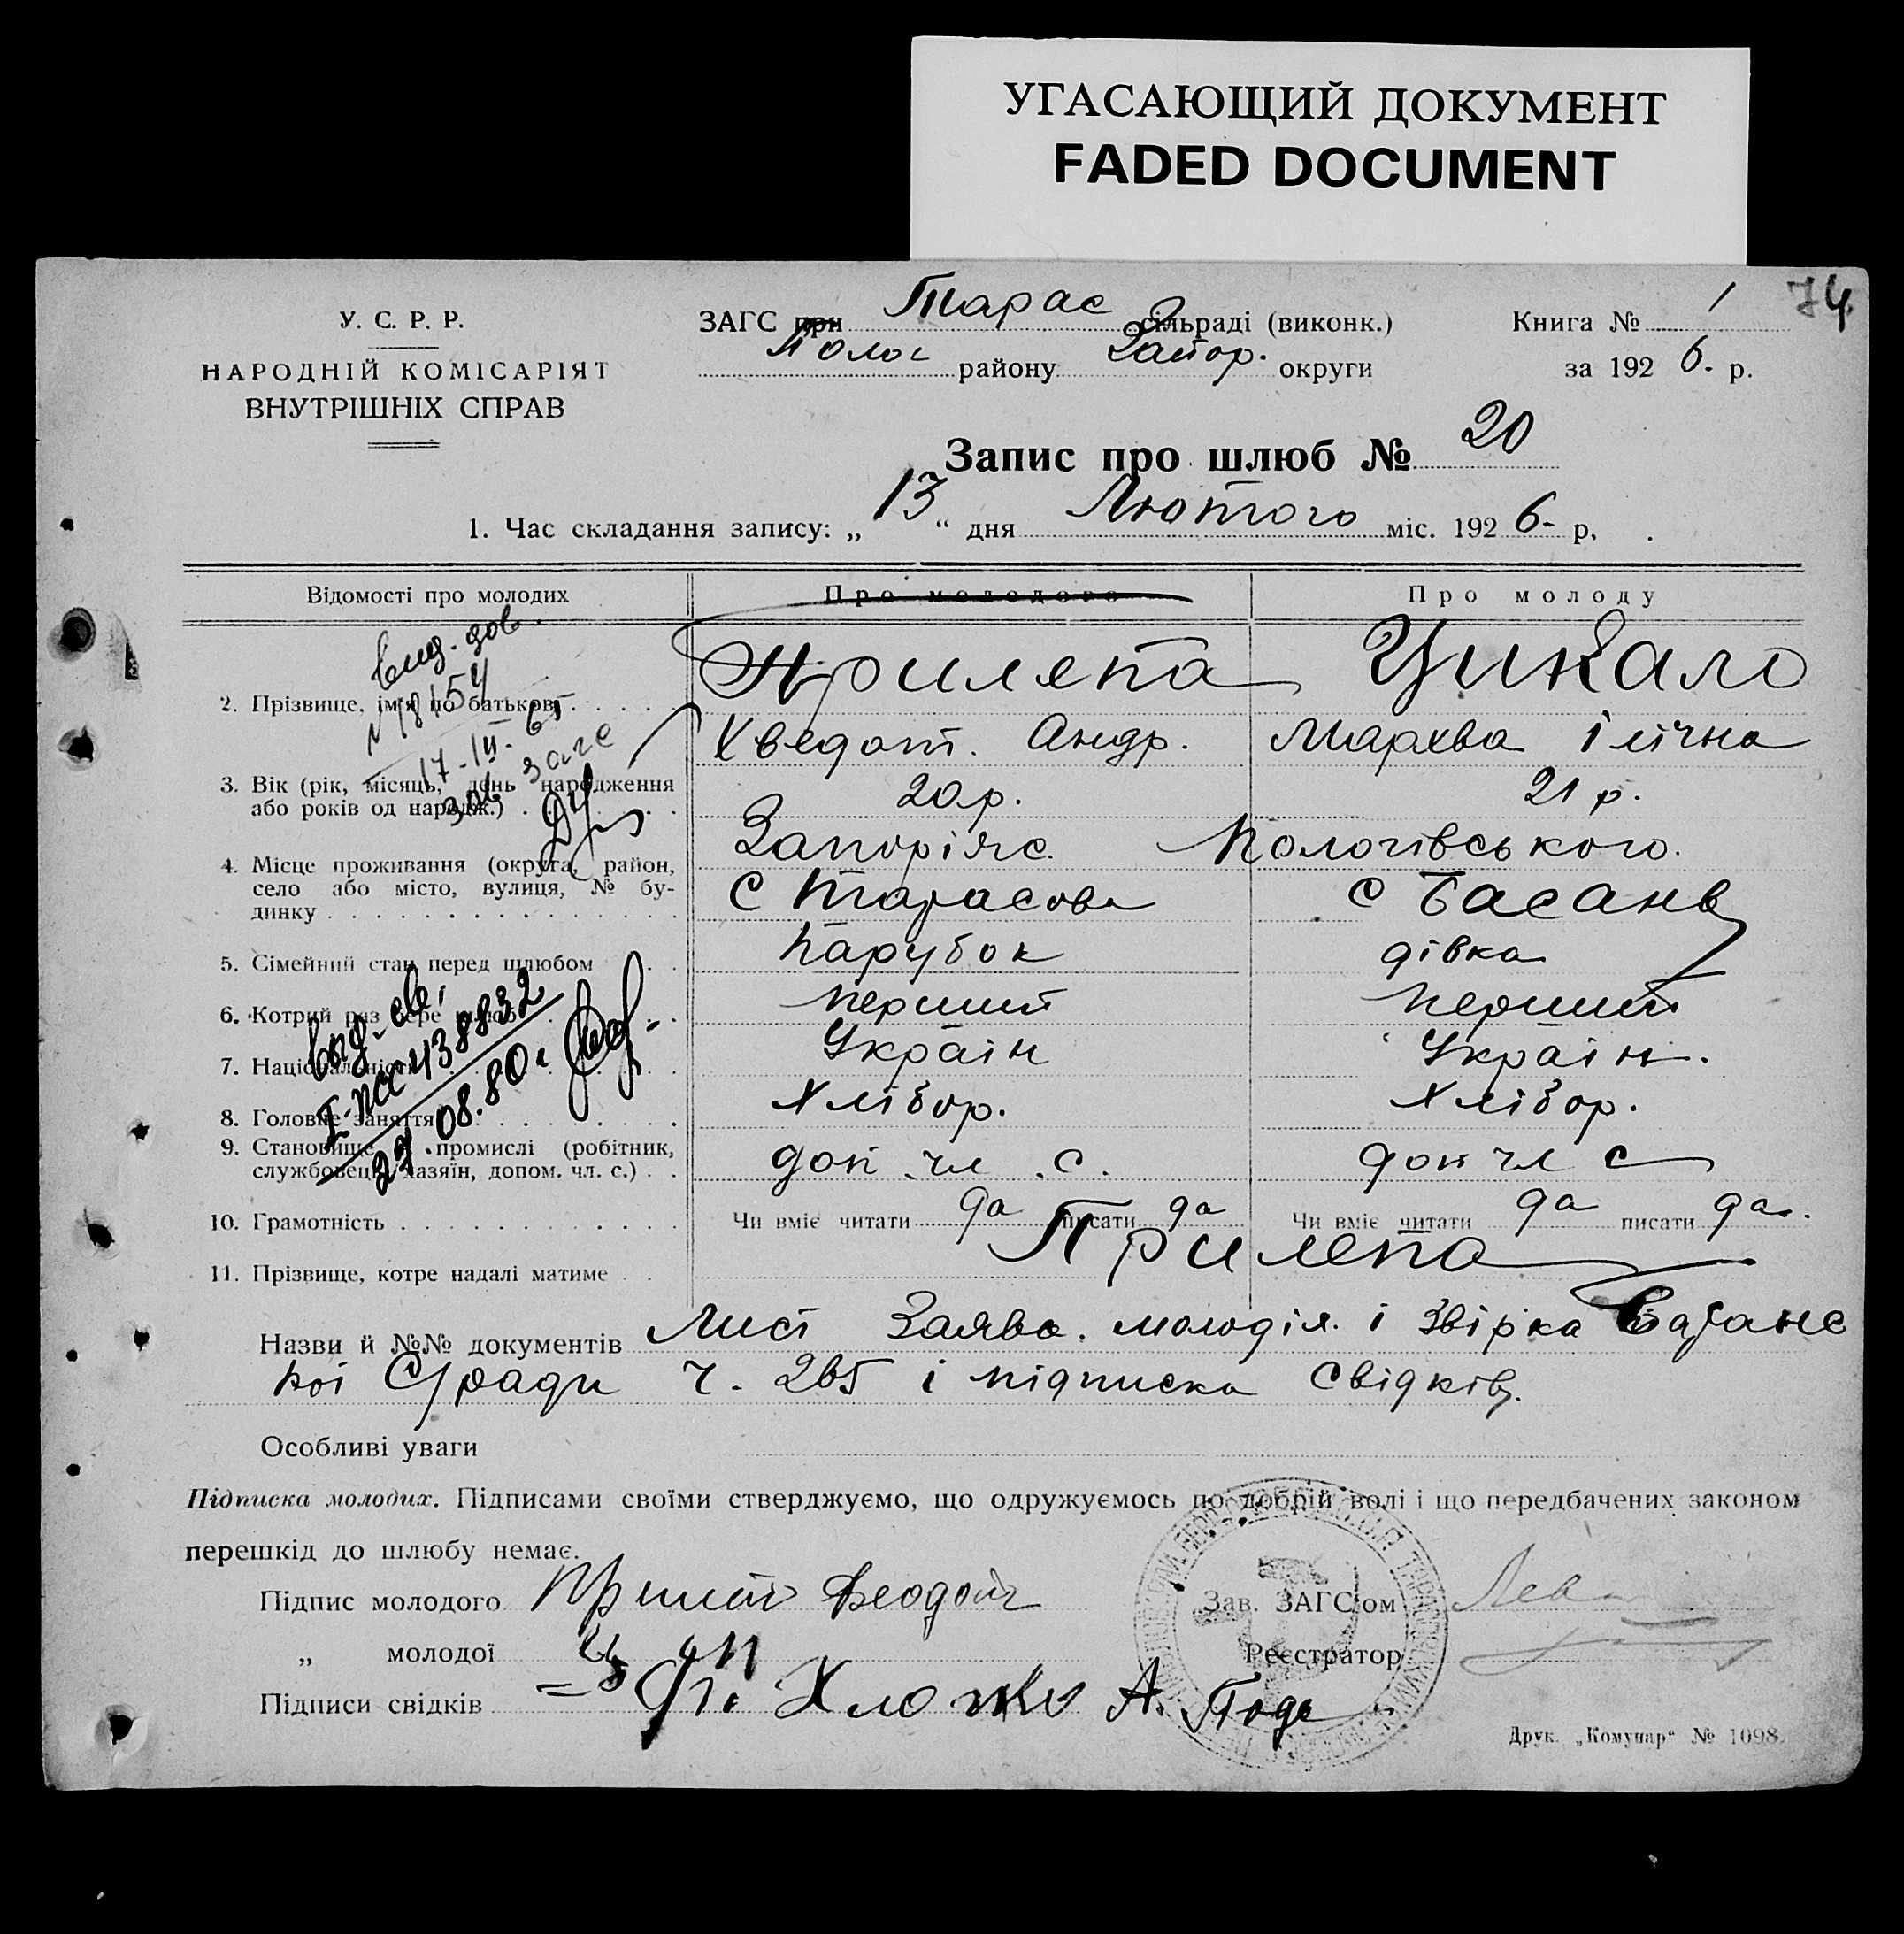 УГАСАЮЩИЙ ДОКУМЕНТ
FADED DOCUMENT
74
У. С. Р. Р.
НАРОДНІЙ КОМІСАРІЯТ
ВНУТРІШНІХ СПРАВ
ЗАГС при Тарас сільраді (виконк.)
Полог району Запор. округи
Книга № 1
за 1926. р.
Запис про шлюб № 20
1. Час складання запису: „13“ дня Лютого міс. 1926- р.
Відомості про молодих Про молодого Про молоду
2. Прізвище, ім'я по батькові Прилепа Цикало
Хведот. Андр. Мархва Ілічна
3. Вік (рік, місяць, день народження або років од народж.) 20 р. 21 р.
4. Місце проживання (округа, район, село або місто, вулиця, № будинку Запоріяс. Пологівського.
с Тарасовв с Басань
5. Сімейний стан перед шлюбом Парубок дівка
6. Котрий раз бере шлюб Перший Перший
7. Національність Україн Україн.
8. Головне заняття Хлібор. Хлібор.
9. Становище в промислі (робітник, службовець, хазяїн, допом. чл. с.) доп чл. с. доп чл с
10. Грамотність Чи вміє читати да писати да Чи вміє читати да писати да.
11. Прізвище, котре надалі матиме Прилепа
Вид. дов.
N 18154
17-III-65
зав загс
Выд. св.
I-ПСС 438832
27.08.80г
Назви й №№ документів Лист Заява. молодія. і Звірка Басанс
кої С/ради ч. 265 і підписка свідків.
Особливі уваги
Підписка молодих. Підписами своїми стверджуємо, що одружуємось по добрій волі і що передбачених законом
перешкід до шлюбу немає.
Підпис молодого Прилеп Феодот
Зав. ЗАГС'ом
„ молодої
Реєстратор
Підписи свідків А.
Друк. „Комунар“ № 1098.